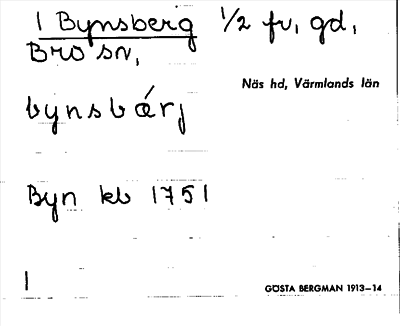 1 Bynsberg ½ fv, gd,
Bro sn,
Näs hd, Värmlands län
bynsbárj
Byn kb 1751
GÖSTA BERGMAN 1913–14